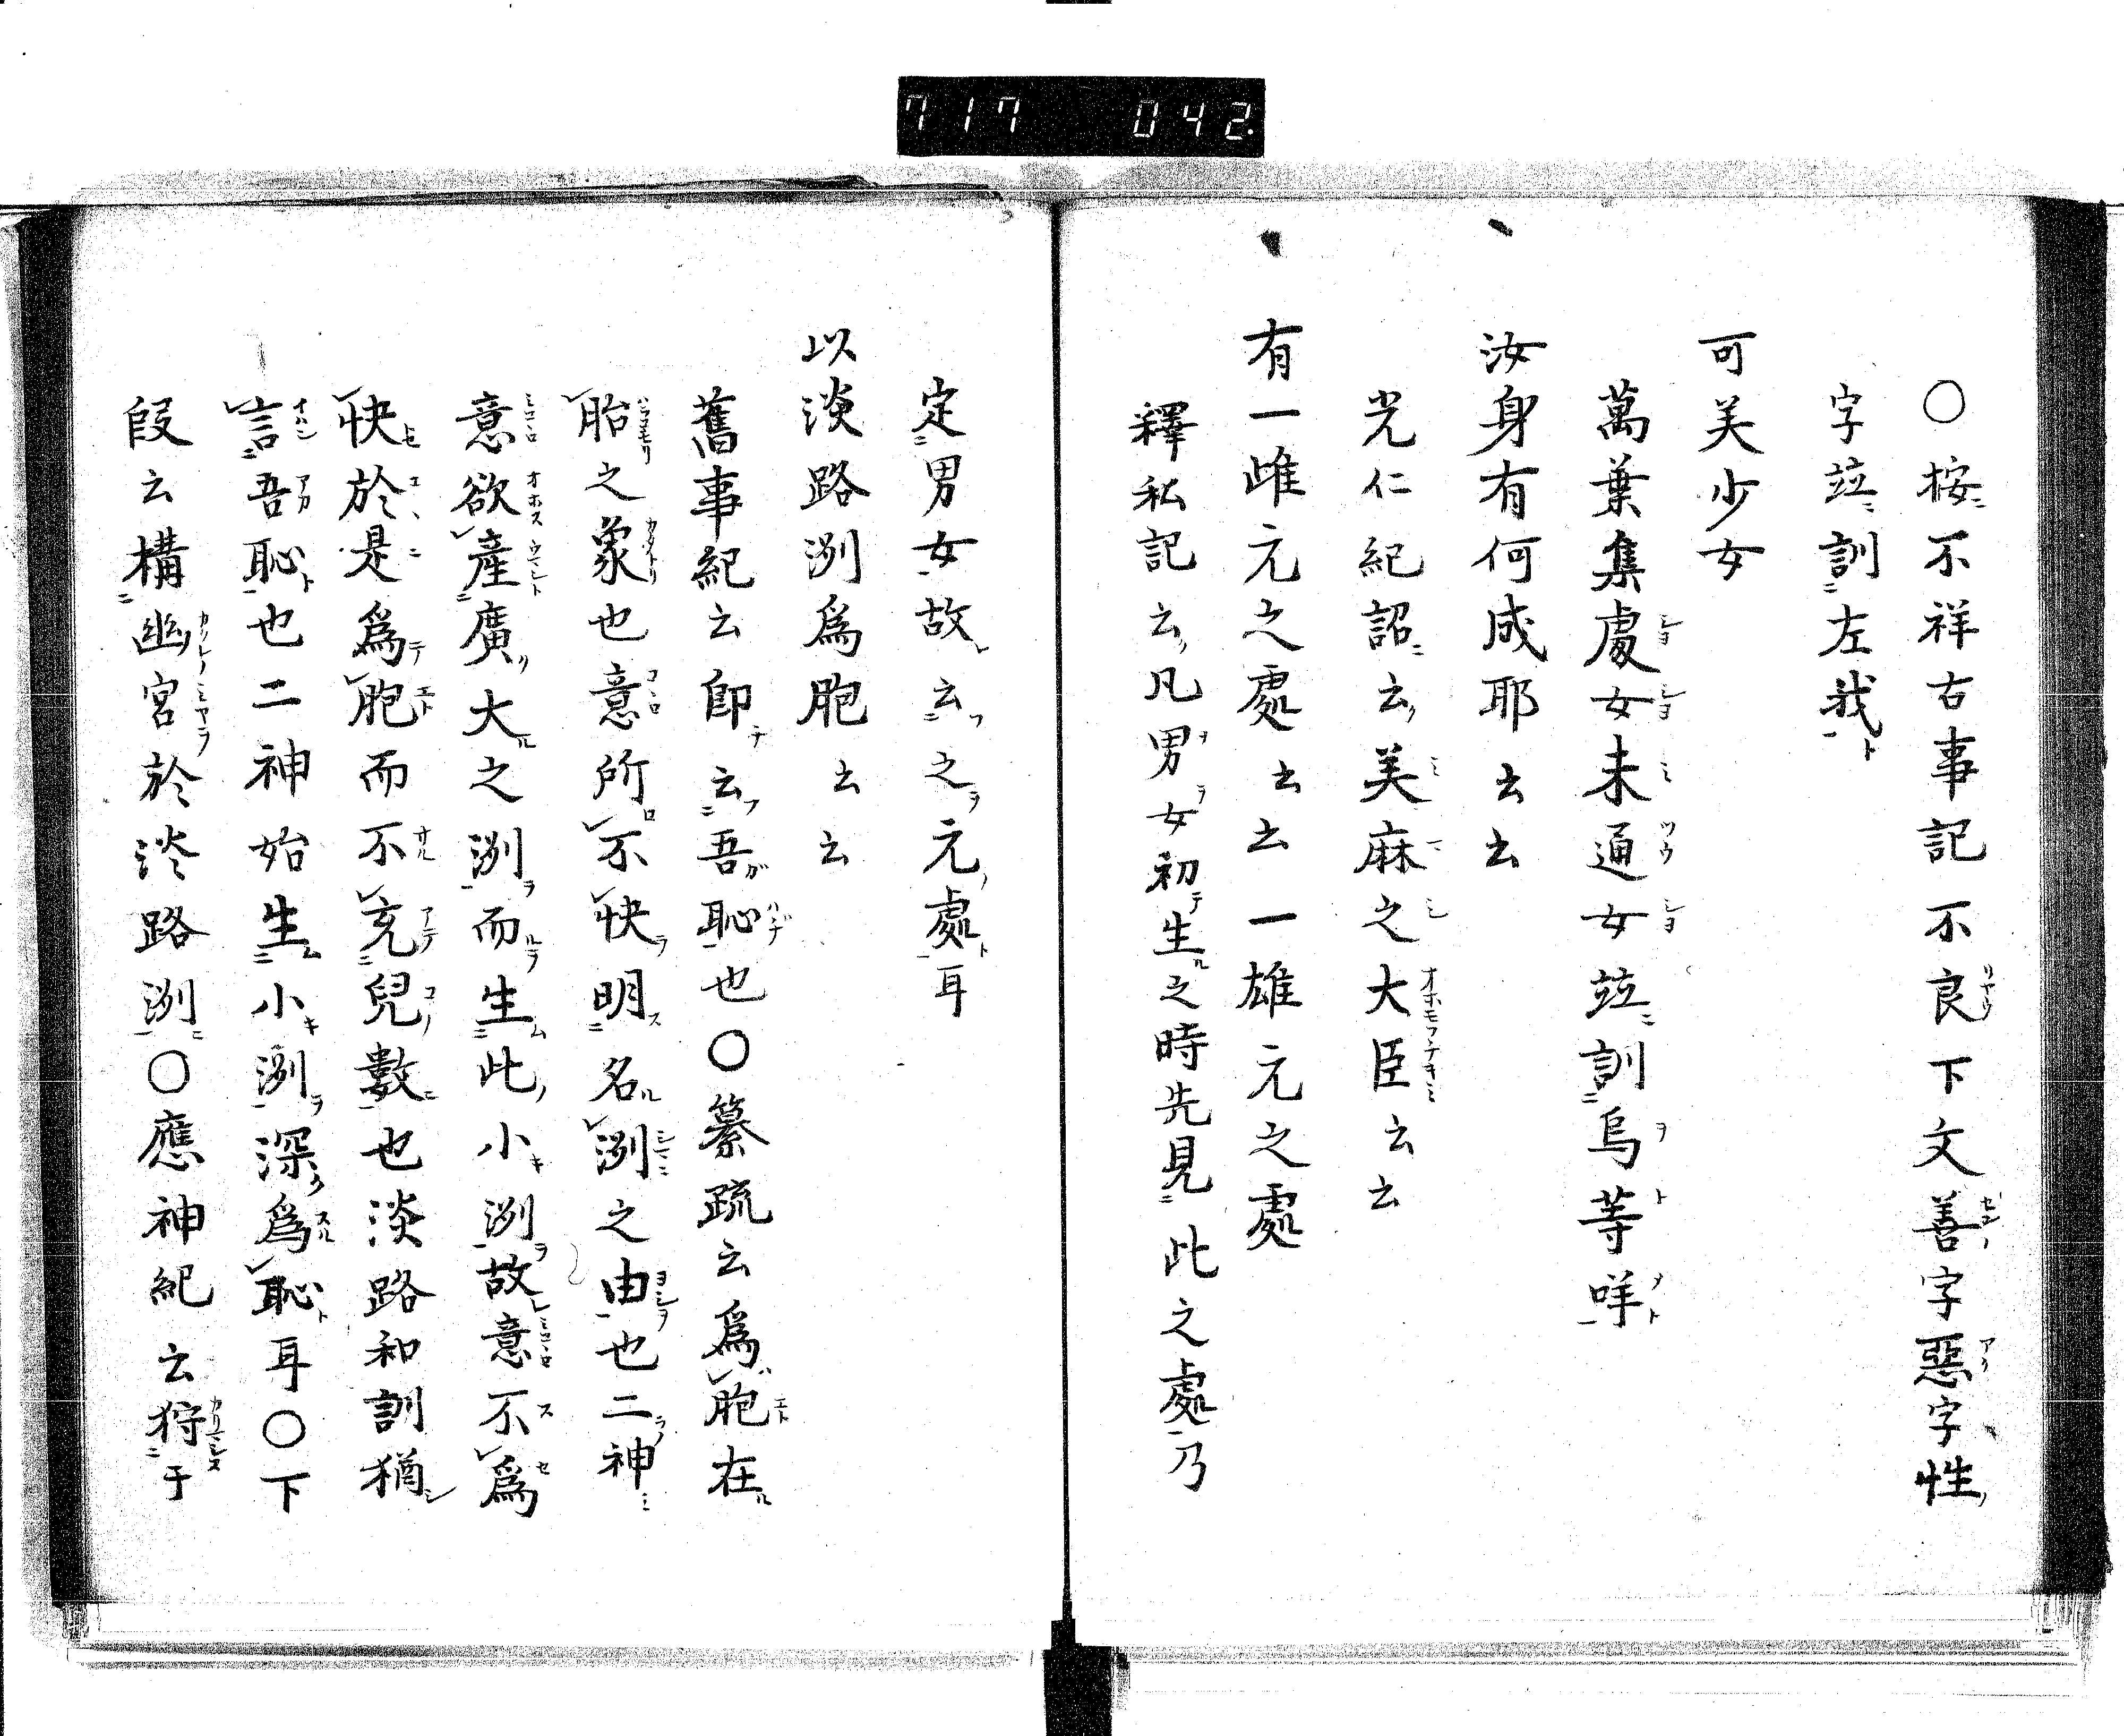 717 042
〇按不祥古事記不良下文善字惡字性
字竝訓左我
可美少女
萬葉集處女未通女竝訓烏等咩
汝身有何成耶云云
光仁紀詔云美麻之大臣云云
有一雌元之處云云一雄元之處
釋私記云凡男女初生之時先見此之處乃
定男女故云之元處耳
以淡路洲爲胞云云
舊事紀云卽云吾恥也〇纂疏云爲胞在
胎之象也意所不快明名洲之由也二神
意欲產廣大之洲而生此小洲故意不爲
快於是爲胞而不充兒數也淡路和訓猶
言吾恥也二神始生小洲深爲恥耳〇下
段云構幽宮於淡路洲〇應神紀云狩于